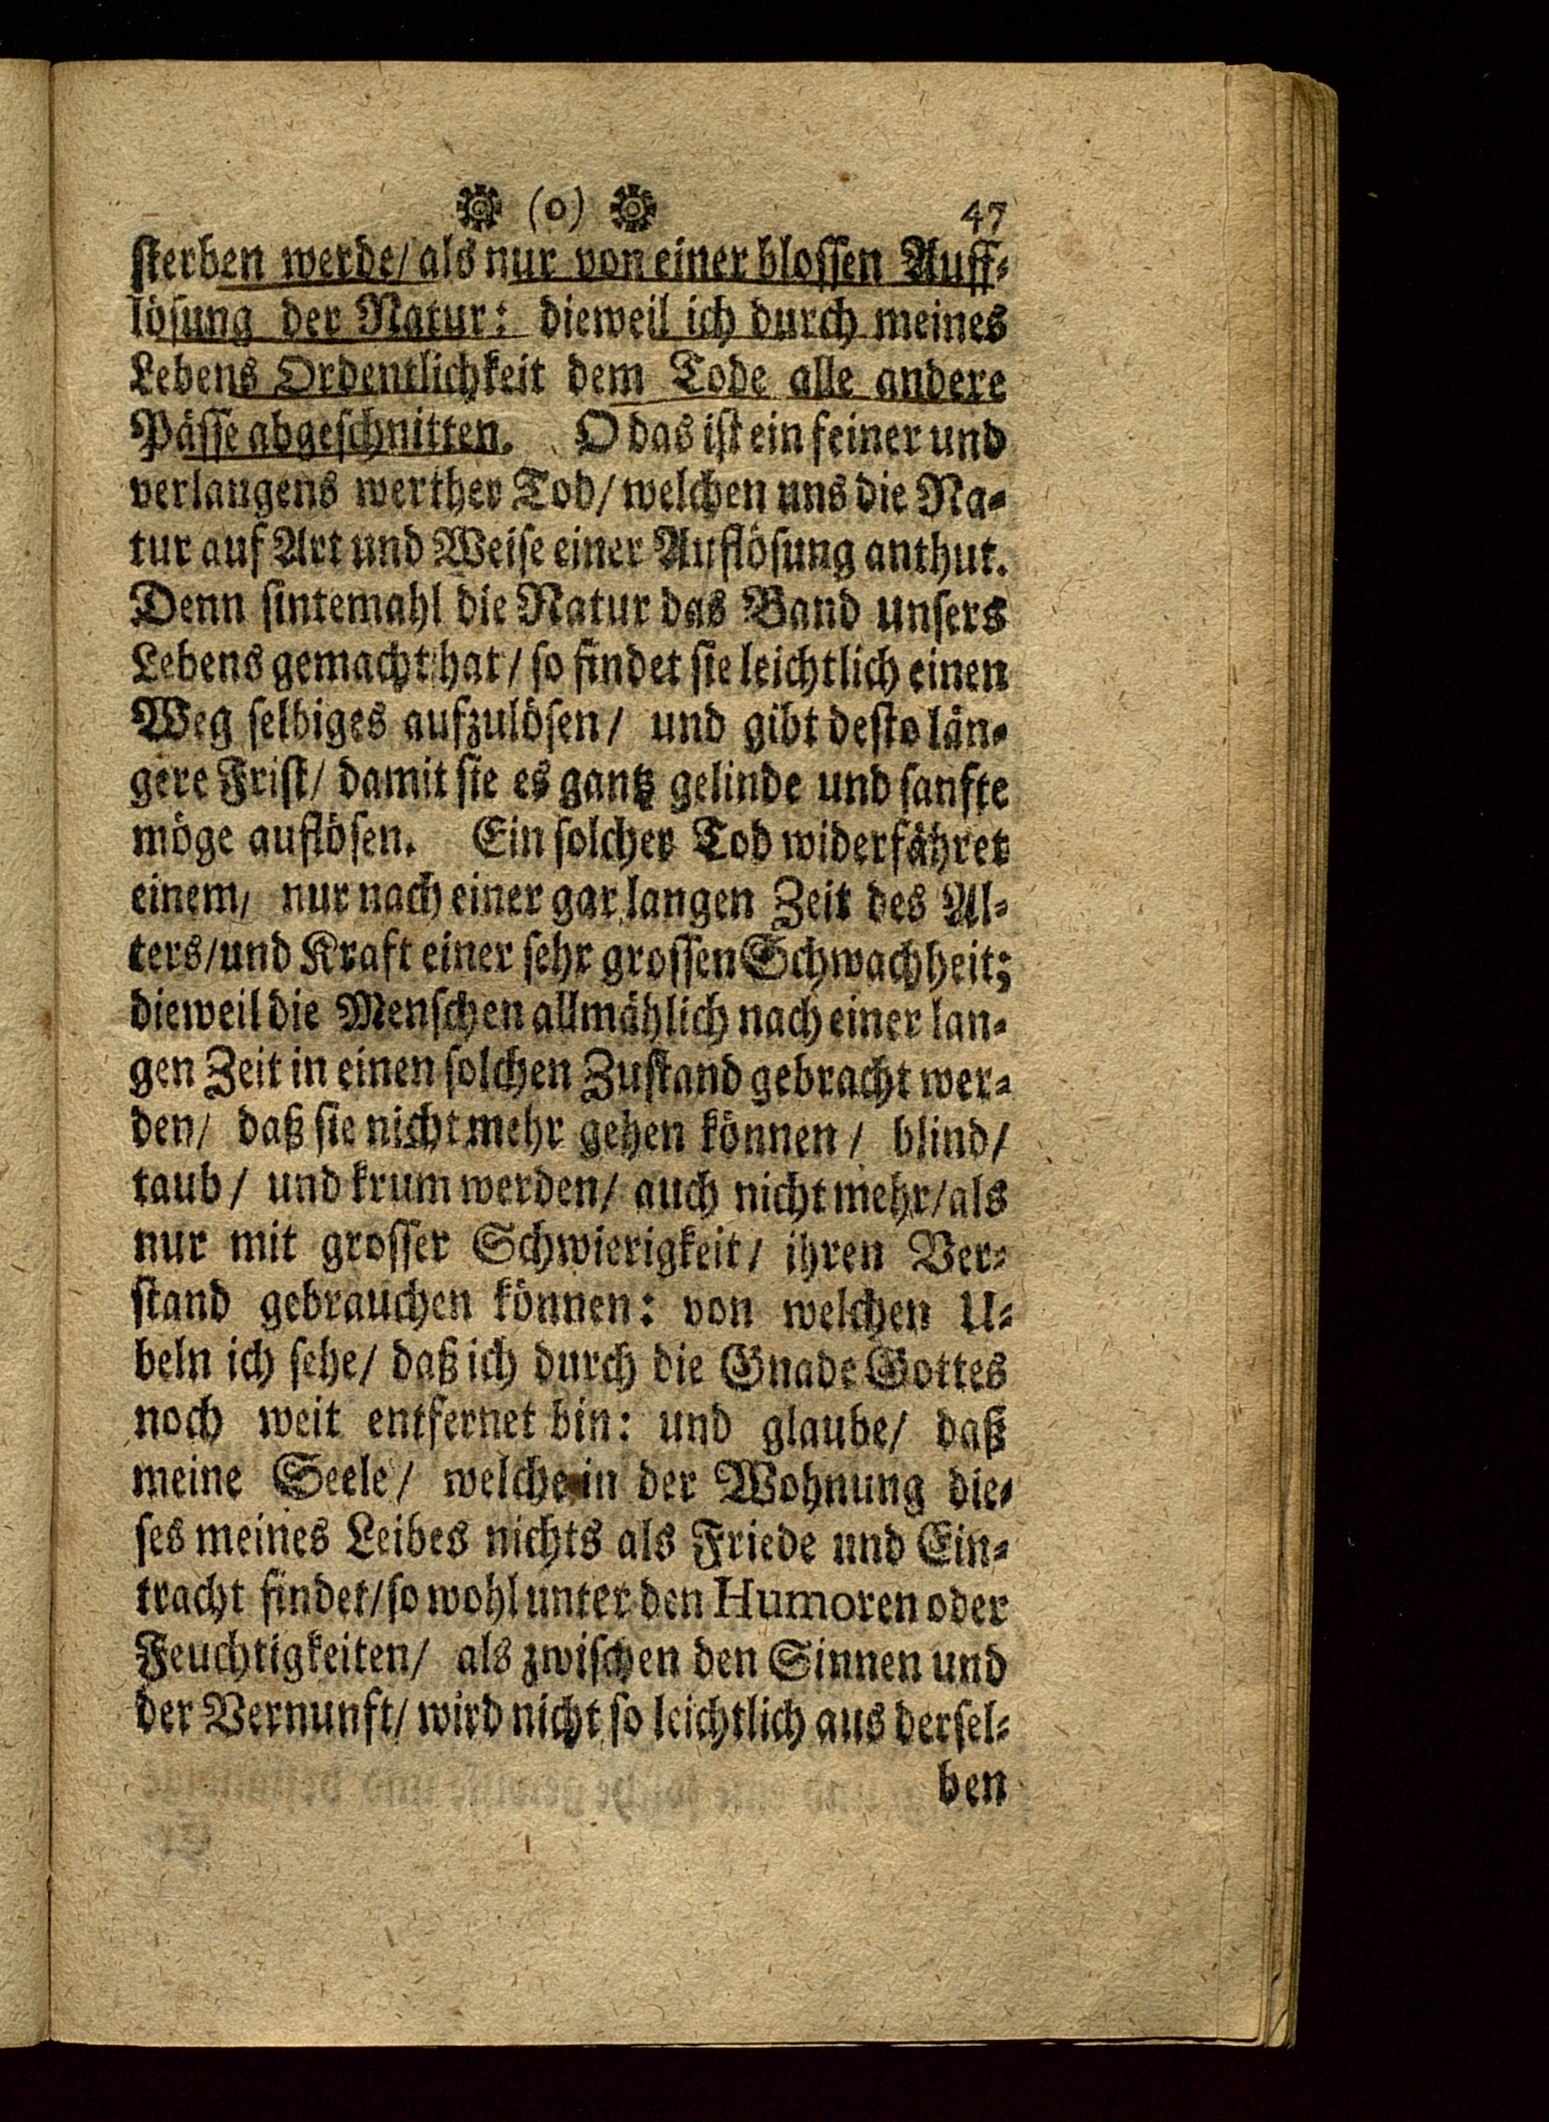 (o) 47
sterben werde/ als nur von einer blossen Auff-
lösung der Natur: dieweil ich durch meines
Lebens Ordentlichkeit dem Tode alle andere
Pässe abgeschnitten. O das ist ein feiner und
verlangens werther Tod/ welchen uns die Na-
tur auf Art und Weise einer Auflösung anthut.
Denn sintemahl die Natur das Band unsers
Lebens gemacht hat/ so findet sie leichtlich einen
Weg selbiges aufzulösen/ und gibt desto län-
gere Frist/ damit sie es gantz gelinde und sanfte
möge auflösen. Ein solcher Tod widerfähret
einem/ nur nach einer gar langen Zeit des Al-
ters/ und Kraft einer sehr grossen Schwachheit;
dieweil die Menschen allmählich nach einer lan-
gen Zeit in einen solchen Zustand gebracht wer-
den/ daß sie nicht mehr gehen können/ blind/
taub/ und krum werden/ auch nicht mehr/ als
nur mit grosser Schwierigkeit/ ihren Ver-
stand gebrauchen können: von welchen U-
beln ich sehe/ daß ich durch die Gnade Gottes
noch weit entfernet bin: und glaube/ daß
meine Seele/ welche in der Wohnung die-
ses meines Leibes nichts als Friede und Ein-
tracht findet/ so wohl unter den Humoren oder
Feuchtigkeiten/ als zwischen den Sinnen und
der Vernunft/ wird nicht so leichtlich aus dersel-
ben